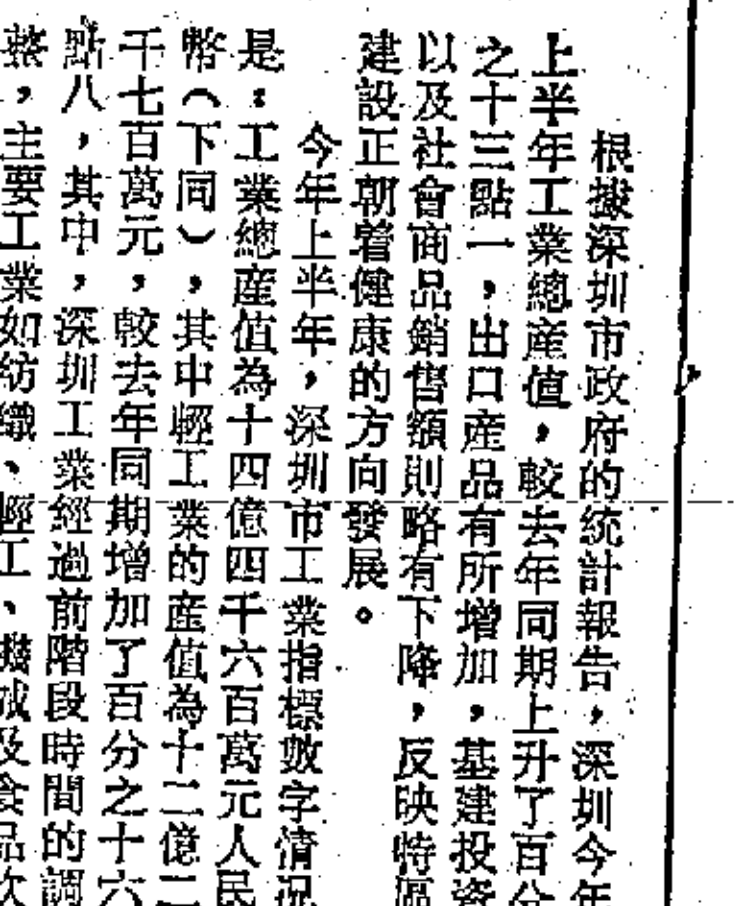 根據深圳市政府的統計報告，深圳今年
上半年工業總產值，較去年同期上升了百分
之十三點一，出口產品有所增加，基建投資
以及社會商品銷售額則略有下降，反映特區
建設正朝着健康的方向發展。
今年上半年，深圳市工業指標數字情況
是：工業總產值為十四億四千六百萬元人民
幣（下同），其中輕工業的產值為十二億二
千七百萬元，較去年同期增加了百分之十六
點八，其中，深圳工業經過前階段時間的調
整，主要工業如紡織、輕工、機械及食品飲